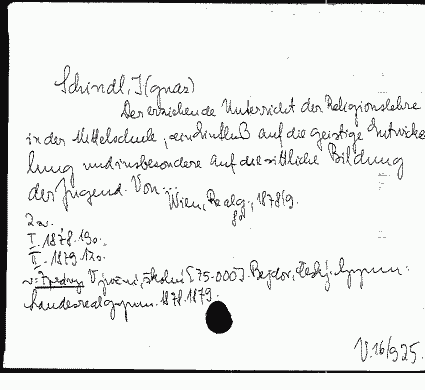 Schindl, I(gnaz)
Der erziehende Unterricht der Religionslehre
in der Mittelschule, sein Einfluß auf die geistige Entwicke
lung und insbesondere auf die sittliche Bildung
der Jugend. Von ...
Wien, Realg., 1878/9.
8°
2 sv.
I. 1878. 190.
II. 1879. 120.
v: Zprávy Výroční, školní [75-000]. Bejdov, Český. Gymn.
Landesrealgymn. 1878. 1879.
V. 16/925.